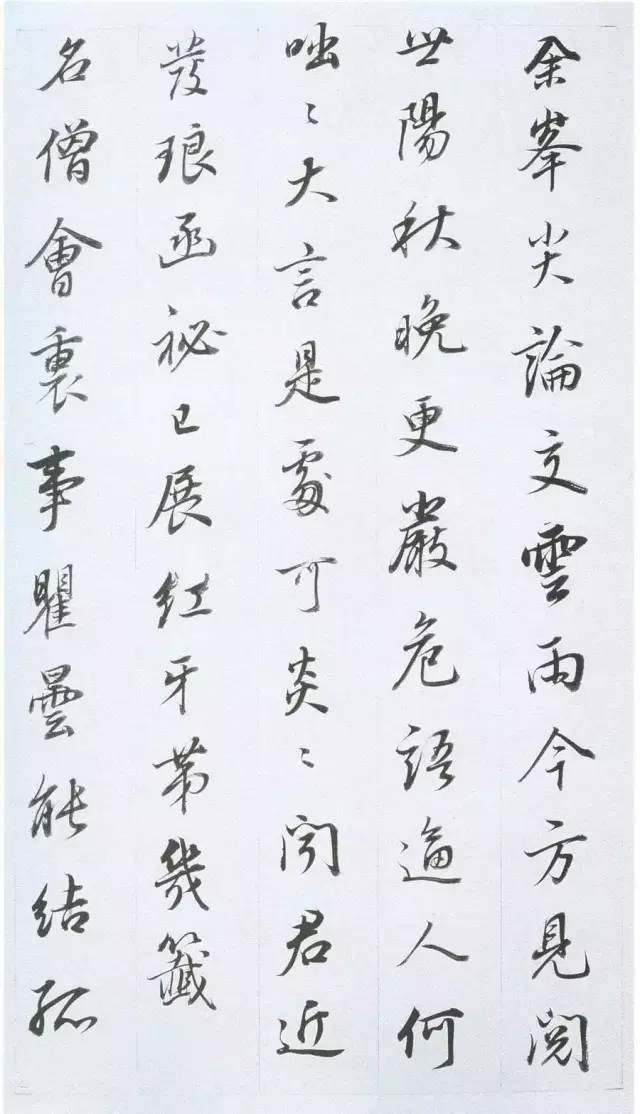 余峯尖論文雲雨今方見閱
世陽秋晚更嚴危語逼人何
咄〻大言是處可炎〻聞君近
發琅函祕已展紅牙第幾籤
名僧會裏事瞿曇能結孤